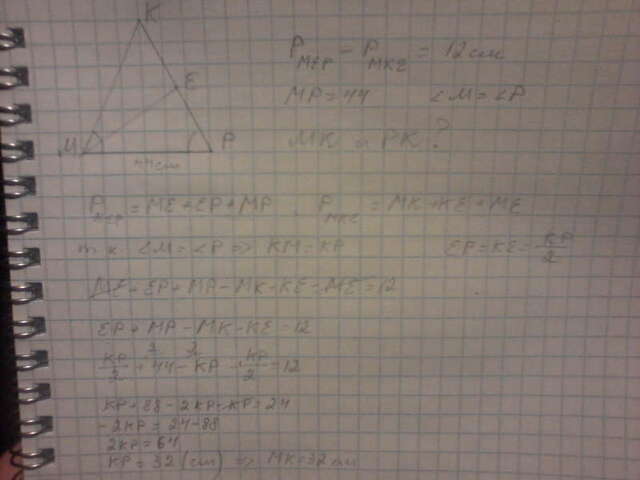 K
E
M
P
44 cm
P MEP − P MKE = 12 см
MP = 44 ∠M = ∠P
MK и PK ?
P MEP = ME + EP + MP , P MKE = MK + KE + ME
т к ∠M = ∠P => KM = KP EP = KE = KP/2
ME + EP + MP − MK − KE − ME = 12
EP + MP − MK − KE = 12
KP/2 + 44 − KP − KP/2 = 12
KP + 88 − 2KP − KP = 24
−2KP = 24 − 88
2KP = 64
KP = 32 (см) => MK = 32 см